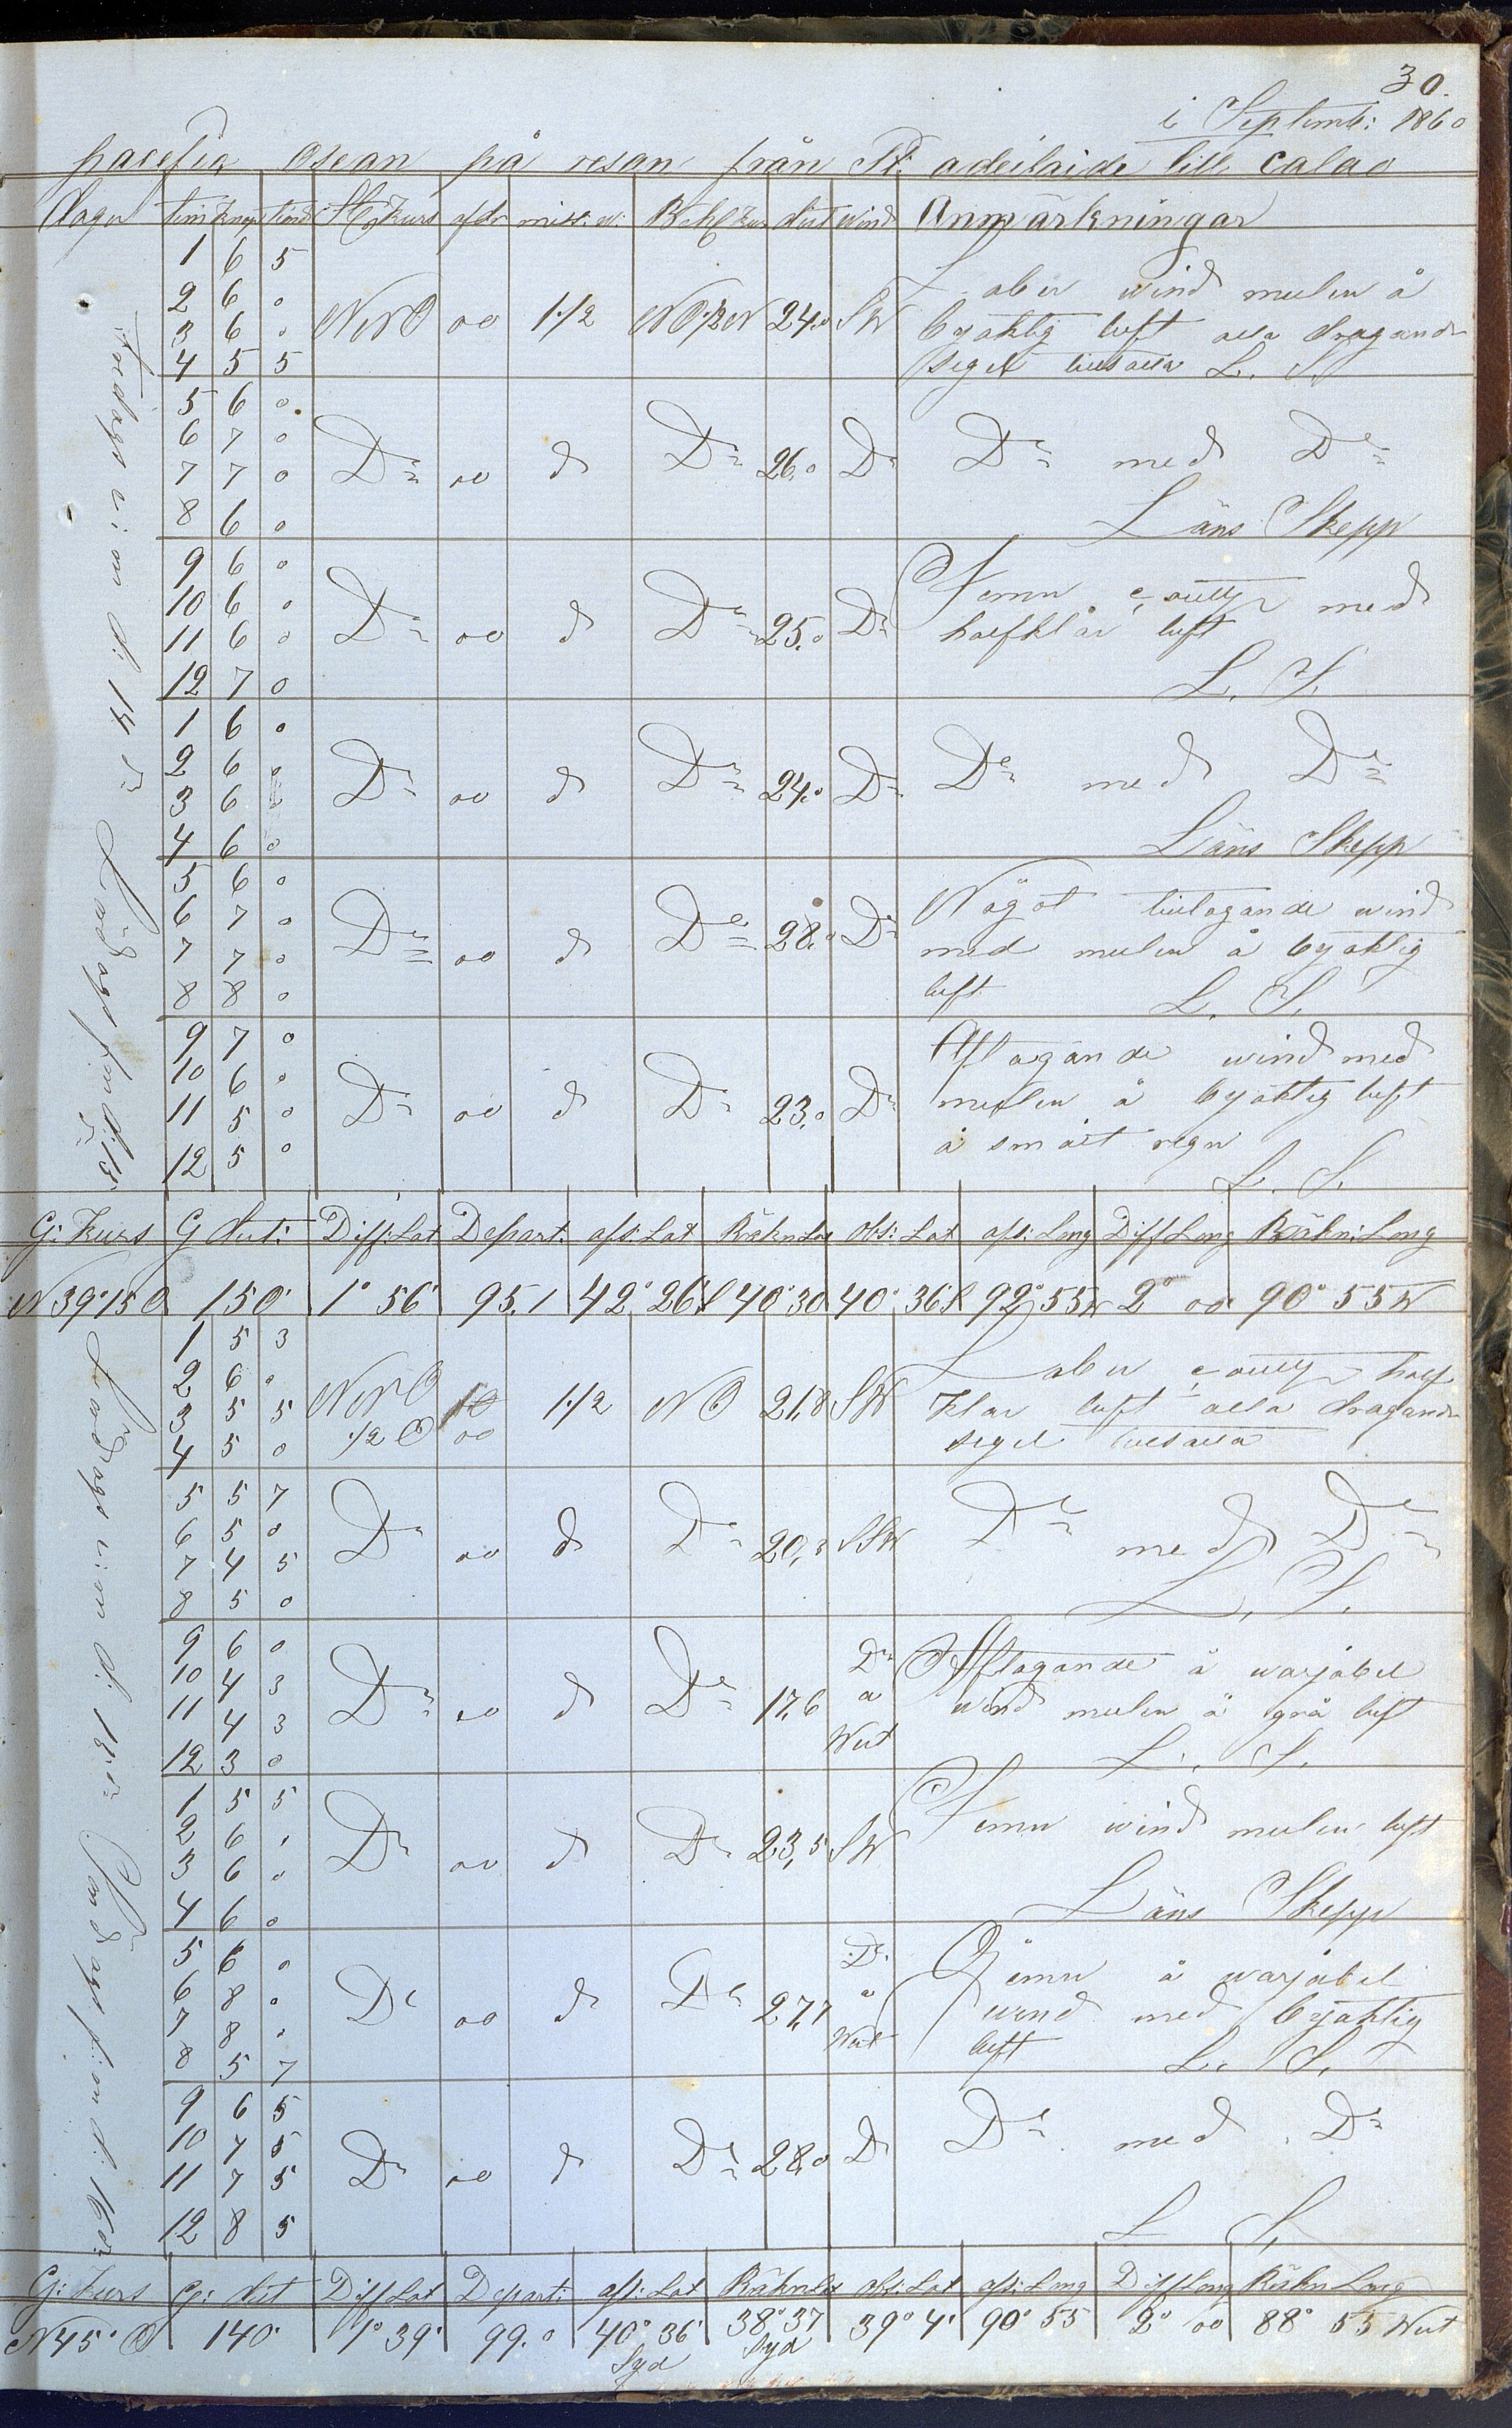 30.
i Septemb: 1860
pacefea Osean på resan från Pt: adeilaide till Calao
dagar tim knop tiend St Kurs afdr miss: w: Beh Kurs dist wind Anmärkningar
Fredags e: m d: 14de
1 6 5
2 6 0
3 6 0
4 5 5
NNO 00 1 1/2 NO 1/2 N 24.0 SW
Laber wind mulen å
byaktig luft alla dragande
segel tillsatta L. S.
5 6 0
6 7 0
7 7 0
8 6 0
Do 00 d Do 26.0 Do Do med Do
Läns Skepp
9 6 0
10 6 0
11 6 0
12 7 0
Do 00 d Do 25.0 Do
Jemn med
halfklar luft
L. S.
Lördags f m d: 15
1 6 0
2 6 0
3 6 0
4 6 0
Do 00 d Do 24.0 Do Do med Do
Läns Skepp
5 6 0
6 7 0
7 7 0
8 8 0
Do 00 d Do 28.0 Do
Något tiltagande wind
med mulen å byaktig
luft L. S.
9 7 0
10 6 0
11 5 0
12 5 0
Do 00 d Do 23.0 Do
Aftagande wind med
mulen å byaktig luft
å smått regn
L. S.
G: Kurs G dist: Diff: Lat Depart: afs: Lat Räkn Lat obs: Lat afs: Long Diff Long Räkn: Long
N 39° 15 O 150' 1° 56' 95.1 42° 26 S 40° 30 40° 36 S 92° 55 W 2° 00 90° 55 W
Lördags e: m d: 15de
1 5 3
2 6 0
3 5 5
4 5 0
NNO 1/2 O 00 1 1/2 NO 21,8 SW
Laber half
klar luft alla dragande
segel tillsatta
5 5 7
6 5 0
7 4 5
8 5 0
Do 00 d Do 20,2 SSW Do med Do
L. S.
9 6 0
10 4 3
11 4 3
12 3 0
Do 00 d Do 17,6 Do a West
Aftagande å warjabel
wind mulen å grå luft
L. S.
Söndags f: m d: 16de
1 5 5
2 6 0
3 6 0
4 6 0
Do 00 d Do 23,5 SW
Jemn wind mulen luft
Läns Skepp
5 6 0
6 8 0
7 8 0
8 5 7
Do 00 d Do 27,7 Do a West
Jemn å warjabel
wind med byaktig
luft L. S.
9 6 5
10 7 5
11 7 5
12 8 5
Do 00 d Do 28,0 D Do med Do
L S.
G: Kurs G: dist Diff Lat Depart: afs: Lat Räkn Lat obs: Lat afs: Long Diff Long Räkn Long
N 45° O 140' 1° 39' 99.0 40° 36' Syd 38° 37 Syd 39° 4' 90° 55 2° 00 88° 55 West